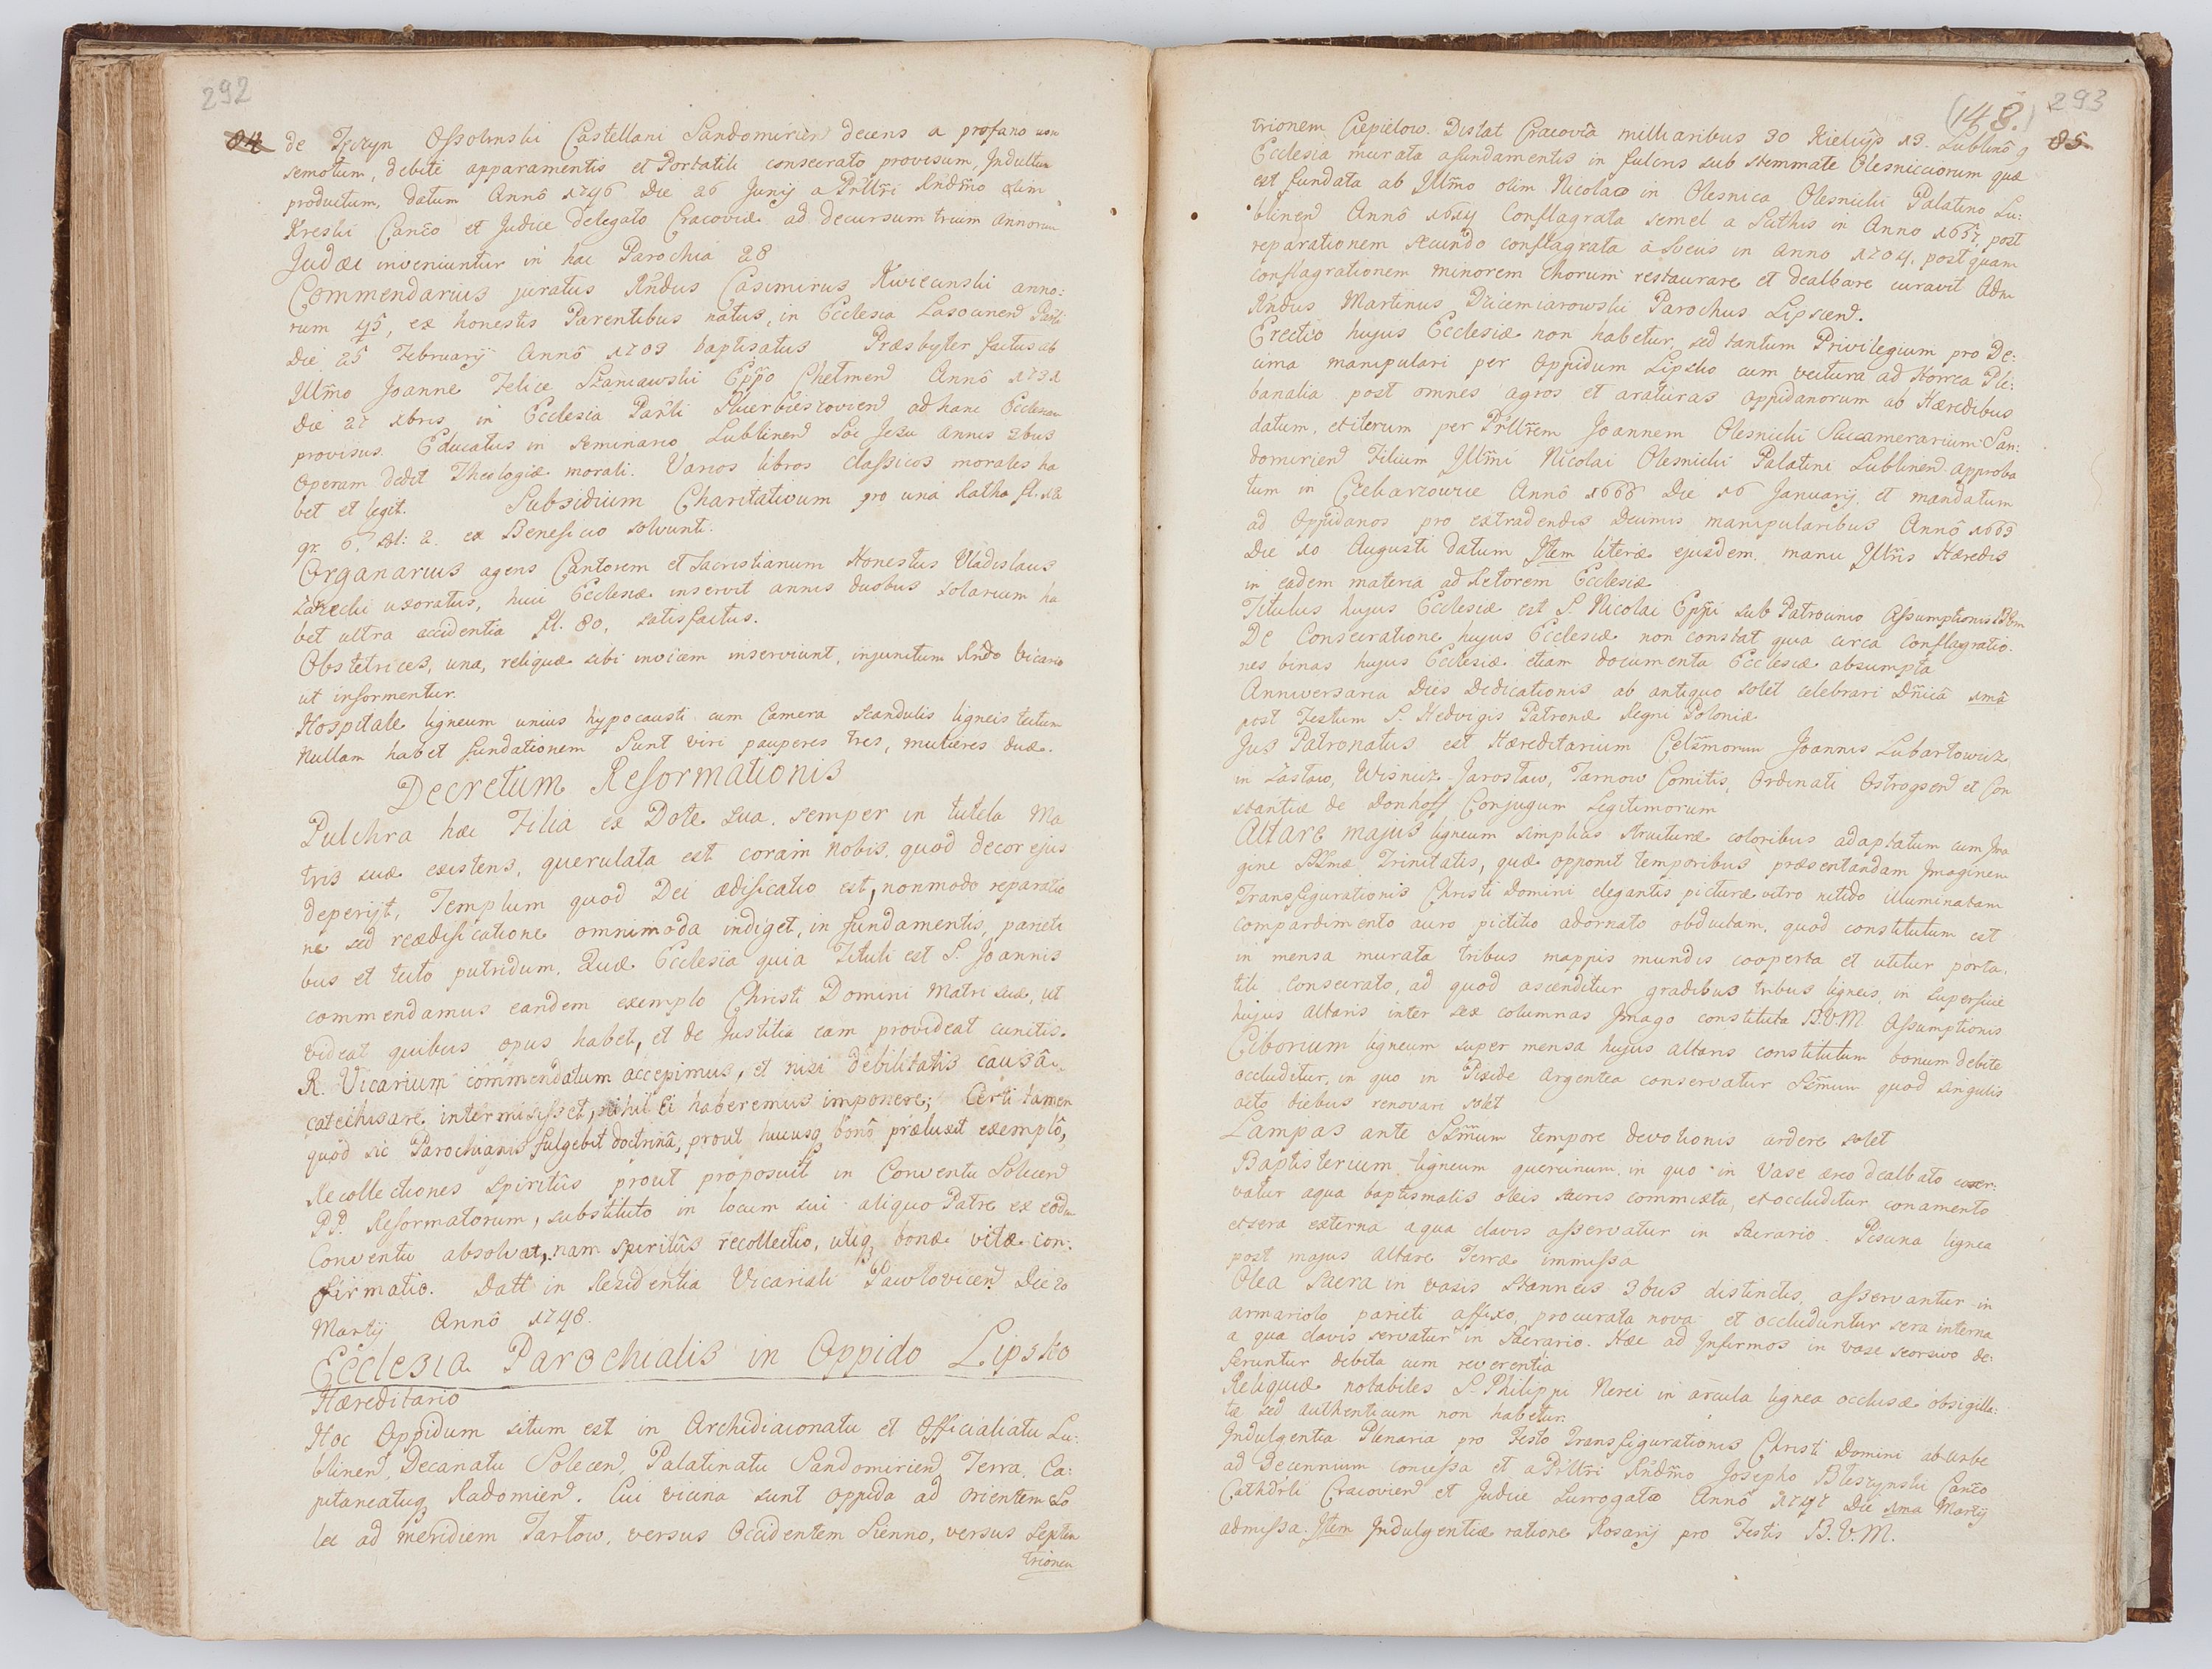 292
84 de Tęczyn Ossolinski Castellani Sandomirien decens a profano non
semotum, debite apparamentis et Portatili consecrato provisum, Indultum
productum, datum Annô 1746 Die 26 Junij a Prllri Rndmo olim
Kreski Canco et Judice delegato Cracoviæ ad decursum trium annorum
Judæi inveniuntur in hac Parochia 28
Commendarius juratus Rndus Casimirus Kwiecinski anno:
rum 45, ex honestis Parentibus natus, in Ecclesia Lasocinen Parli
Die 25 Februarij Annô 1703 baptisatus Præsbyter factus ab
Illmo Joanne Felice Szaniawski Eppo Chelmen Annô 1731
die 27 Xbris in Ecclesia Parli Skierbieszovien ad hanc Ecclesiam
provisus. Educatus in Seminario Lublinen Soc Jesu annis 2bus
Operam dedit Theologiæ morali. Varios libros classicos morales ha
bet et legit. Subsidium Charitativum pro una Ratha fl. 12
gr. 6. sol: 2. ex Beneficio solvunt.
Organarius agens Cantorem et Sacristianum Honestus Vladislaus
uxoratus, huic Ecclesiæ inservit annis duobus Solarium ha
bet ultra accidentia fl. 80, satisfactus.
Obstetrices, una, reliquæ sibi invicem inserviunt, injunctum Rndo Vicario
ut informentur.
Hospitale ligneum unius hypocausti cum Camera Scandulis ligneis tectum
Nullam habet fundationem Sunt viri pauperes tres, mulieres duæ.
Decretum Reformationis
Pulchra hæc Filia ex Dote sua. semper in tutela Ma
tris suæ existens, querulata est coram nobis. quod decor ejus
deperijt, Templum quod Dei ædificatio est, nonmodo reparatio
ne sed reædificatione omnimoda indiget, in fundamentis, parieti
bus et tecto putridum. Quæ Ecclesia quia Tituli est S. Joannis
commendamus eandem exemplo Christi Domini Matri suæ, ut
videat quibus opus habet, et de Justitia eam provideat cunctis.
R. Vicarium commendatum accepimus, et nisi debilitatis causâ
catechisare intermisisset, nihil Ei haberemus imponere; Certi tamen
quod sic Parochianis fulgebit doctrinâ, prout hucusq bonô præluxit exemplô,
Recollectiones spiritûs prout proposuit in Conventu Solecen
P.P. Reformatorum, substituto in locum sui aliquo Patre ex eodem
Conventu absolvat, nam Spiritûs recollectio, utiq bonæ vitæ con:
firmatio. Datt in Residentia Vicariali Pawlovicen Die 20
Martij Annô 1748.
Ecclesia Parochialis in Oppido Lipsko
Hæreditario
Hoc Oppidum situm est in Archidiaconatu et Officialiatu Lu:
blinen, Decanatu Solecen, Palatinatu Sandomirien Terra, Ca:
pitaneatuq Radomien. Cui vicina sunt oppida ad Orientem So
lec ad meridiem Tarlow, versus Occidentem Sienno, versus Septen
trionem
(148.) 293
85
trionem Ciepielow. Distat Cracoviâ milliaribus 30 Kielcijs 13. Lublinô 9
Ecclesia murata afundamentis in fulcris sub stemmate Olesnicciorum quæ
est fundata ab Illmo olim Nicolao in Olesnica Olesnicki Palatino Lu:
blinen Annô 1614 Conflagrata semel a Suthis in Anno 1657, post
reparationem secundo conflagrata a Svecis in anno 1704. post quam
conflagrationem minorem Chorum restaurare et dealbare curavit Adm
Rndus Martinus Dziemiarowski Parochus Lipscen.
Erectio hujus Ecclesiæ non habetur, sed tantum Privilegium pro De:
cima manipulari per Oppidum Lipsko cum vectura ad Horrea Ple:
banalia post omnes agros et araturas Oppidanorum ab Hæredibus
datum, et iterum per Prllrem Joannem Olesnicki Succamerarium San:
domirien Filium Illmi Nicolai Olesnicki Palatini Lublinen approba
tum in Annô 1666 Die 16 Januarij, et mandatum
ad Oppidanos pro extradendis Decimis manipularibus Annô 1669
Die 10 Augusti datum Item literæ ejusdem manu Illris Hæredis
in eadem materia ad Retorem Ecclesiæ
Titulus hujus Ecclesiæ est S. Nicolai Eppi sub Patrocinio Assumptionis BVM
De Consecratione hujus Ecclesiæ non constat quia circa Conflagratio:
nes binas hujus Ecclesiæ etiam documenta Ecclesiæ absumpta
Anniversaria Dies Dedicationis ab antiquo solet celebrari Dnicâ 1mâ
post Festum S. Hedvigis Patronæ Regni Poloniæ
Jus Patronatus est Hæreditarium Celsmorum Joannis Lubartowicz
in Zasław, Wisnicz Jarosław, Tarnow Comitis, Ordinati Ostrogsen et Con
stantiæ de Donhoff Conjugum Legitimorum
Altare majus ligneum simplicis structuræ coloribus adaptatum cum Ima
gine SSmæ Trinitatis, quæ opponit temporibus præsentandam Imaginem
Transfigurationis Christi Domini elegantis picturæ vitro nitido illuminatam
compardimento auro pictito adornato obductam, quod constitutum est
in mensa murata tribus mappis mundis cooperta et utitur porta:
tili Consecrato, ad quod ascenditur gradibus tribus ligneis, in superficie
hujus Altaris inter sex columnas Imago constituta B.V.M Assumptionis
Ciborium ligneum super mensa hujus altaris constitutum bonum debite
occluditur, in quo in Pixide Argentea conservatur SSmum quod singulis
octo diebus renovari solet
Lampas ante SSmum tempore devotionis ardere solet
Baptisterium ligneum quercinum in quo in Vase æreo dealbato conser:
vatur aqua baptismalis oleis sacris commixta, et occluditur conamento
et sera externa a qua clavis asservatur in Sacrario. Piscina lignea
post majus altare Terræ immissa
Olea Sacra in vasis Stanneis 3bus distinctis, asservantur in
armariolo parieti affixo procurata nova et occluduntur sera interna
a qua clavis servatur in Sacrario. Hæc ad Infirmos in vase seorsivo de:
feruntur debita cum reverentia
Reliquiæ notabiles S. Philippi Nerei in arcula lignea occlusæ obsigilla:
tæ sed authenticum non habetur.
Indulgentia Plenaria pro Festo Transfigurationis Christi Domini ab urbe
ad Decennium concessa et a Prllri Rndmo Josepho Bleszynski Canco
Cathdrli Cracovien et Judice Surrogato Annô 1747 Die 1ma Martij
admissa. Item Indulgentiæ ratione Rosarij pro Festis B.V.M.